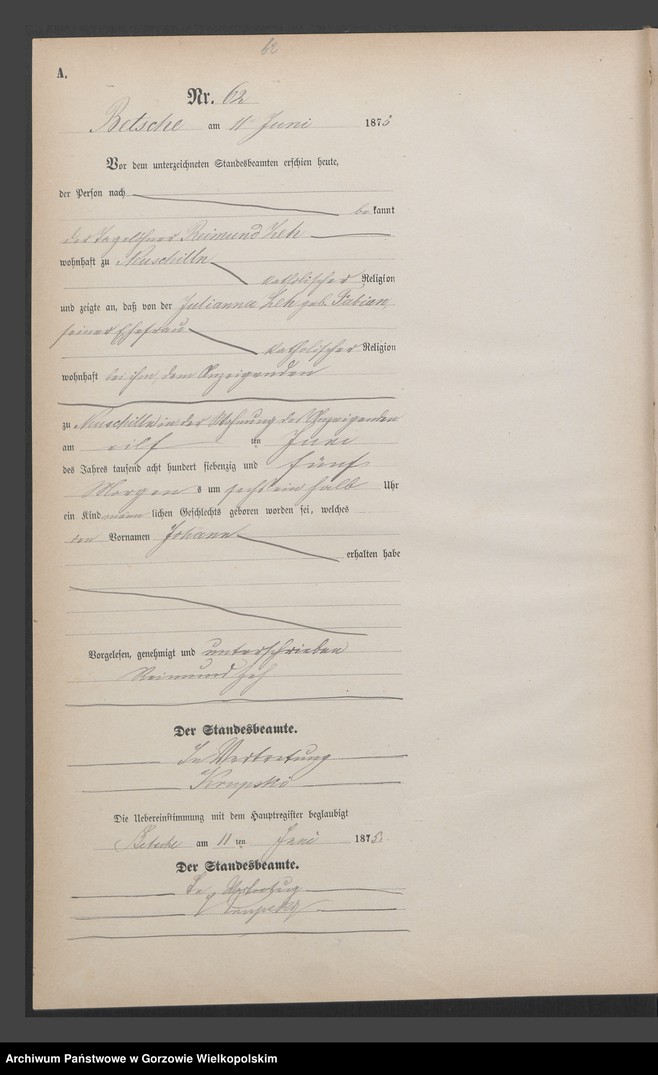 62
A.
Nr. 62
Betsche am 11 Juni 1875
Vor dem unterzeichneten Standesbeamten erschien heute,
der Person nach bekannt
der Tagelöhner Reimund Zeh
wohnhaft zu Muschilln
katholischer Religion
und zeigte an, daß von der Julianna Zeh geb. Fabian,
seiner Ehefrau
katholischer Religion
wohnhaft bei ihm, dem Anzeigenden
zu Muschilln in der Wohnung des Anzeigenden
am eilf ten Juni
des Jahres tausend acht hundert siebenzig und fünf
Morgens um sechs ein halb Uhr
ein Kind männlichen Geschlechts geboren worden sei, welches
den Vornamen Johann
erhalten habe
Vorgelesen, genehmigt und unterschrieben
Reimund Zeh
Der Standesbeamte.
In Vertretung
Krupski
Die Uebereinstimmung mit dem Hauptregister beglaubigt
Betsche am 11 ten Juni 1875.
Der Standesbeamte.
In Vertretung
Krupski
Archiwum Państwowe w Gorzowie Wielkopolskim